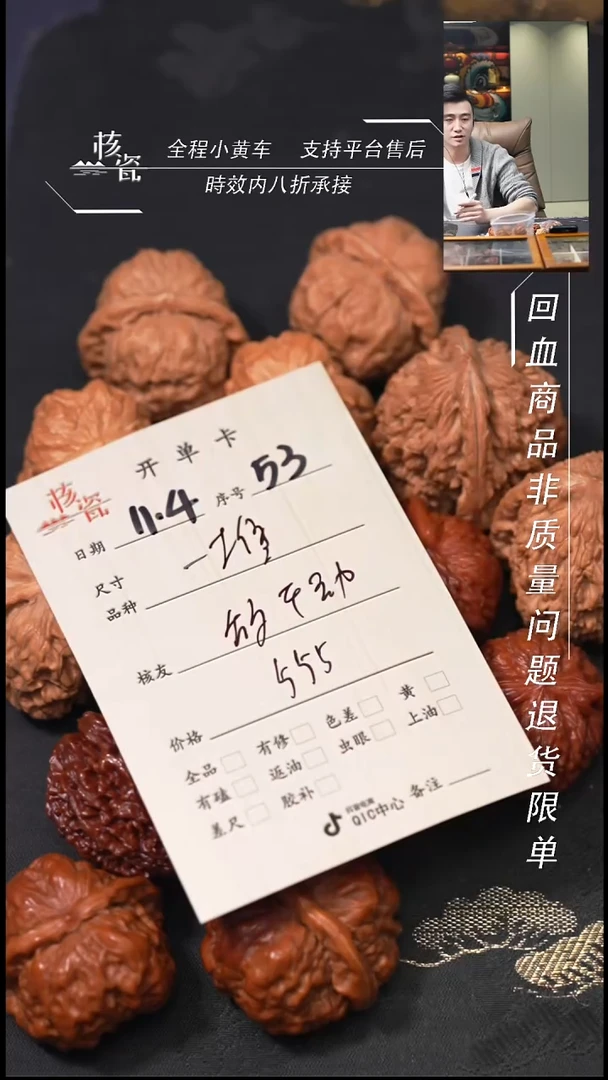 核瓷
全程小黄车 支持平台售后
時效内八折承接
回血商品非质量问题退货限单
核瓷
开单卡
日期 11.4 序号 53
尺寸
品种 一堆
核友
价格 555
全品 有修 色差 黄
有磕 返油 虫眼 上油
差尺 胶补
抖音电商
QIC中心 备注